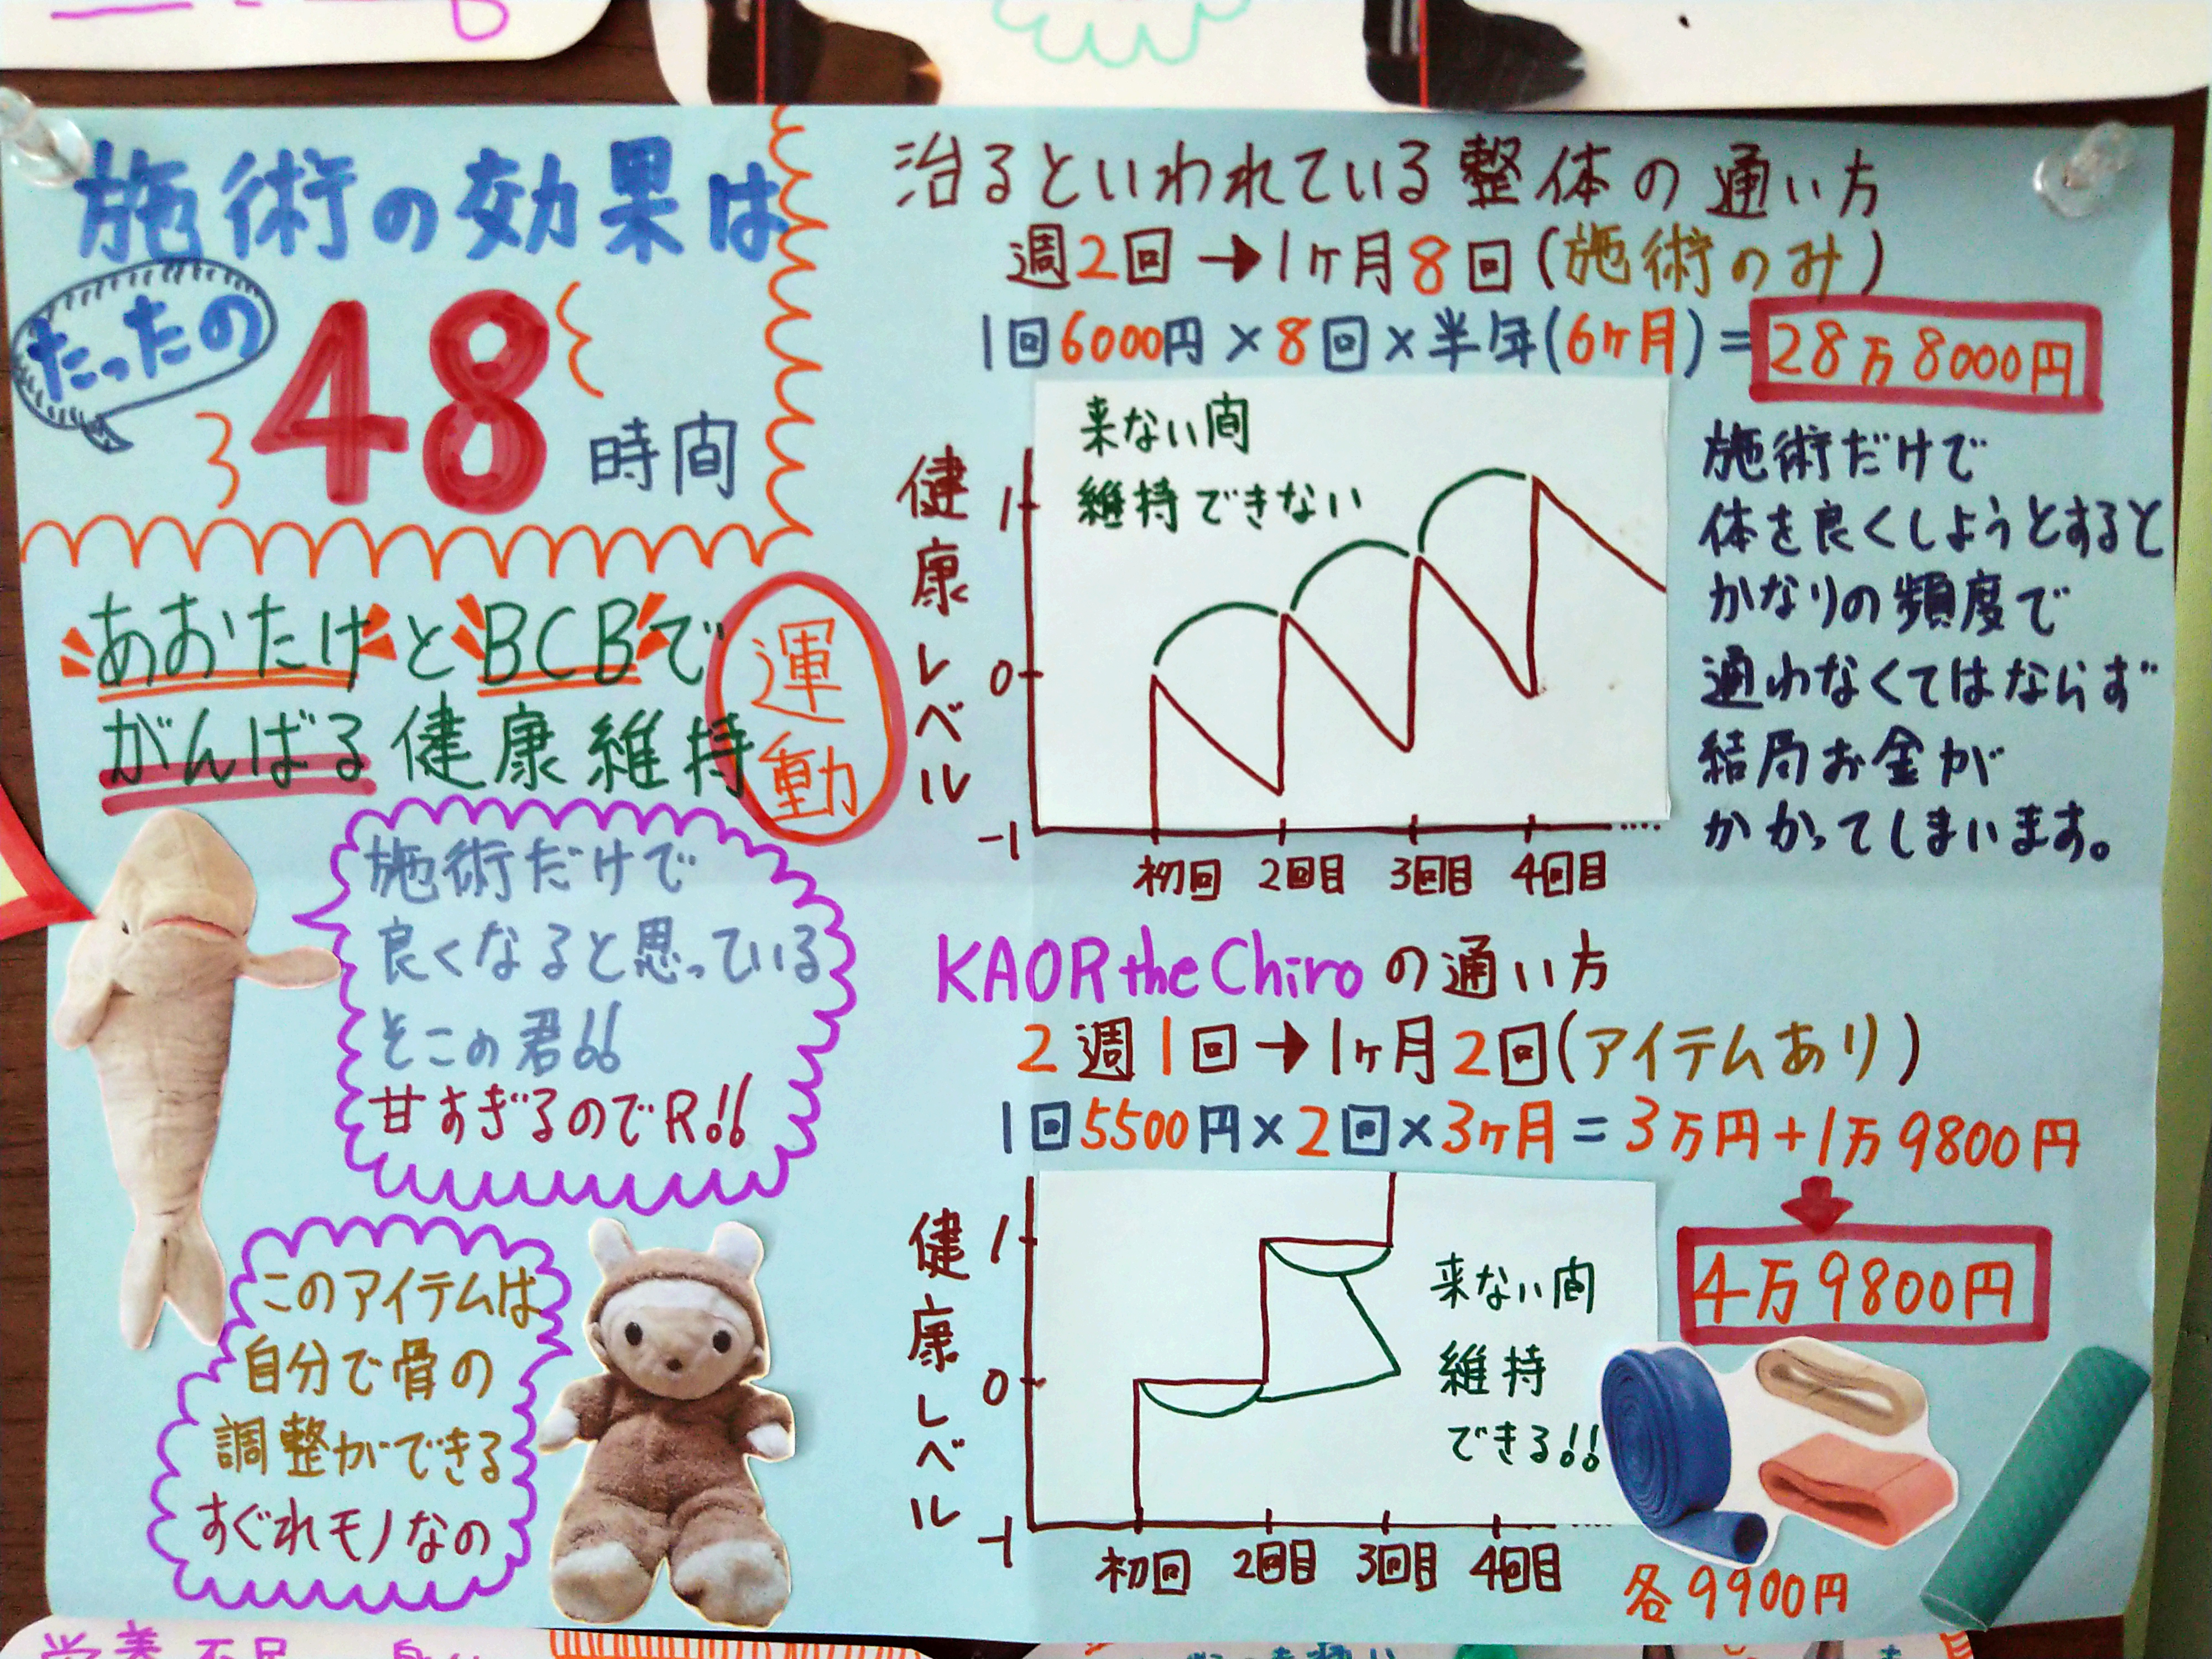 施術の効果は
たったの
48時間
あおたけとBCBで
がんばる健康維持
運動
施術だけで
良くなると思っている
そこの君!!
甘すぎるのでR!!
このアイテムは
自分で骨の
調整ができる
すぐれモノなの
治るといわれている整体の通い方
週2回→1ヶ月8回(施術のみ)
1回6000円×8回×半年(6ヶ月)=28万8000円
来ない間
維持できない
健康レベル
1
0
-1
初回 2回目 3回目 4回目
施術だけで
体を良くしようとすると
かなりの頻度で
通わなくてはならず
結局お金が
かかってしまいます。
KAOR the Chiroの通い方
2週1回→1ヶ月2回(アイテムあり)
1回5500円×2回×3ヶ月=3万円+1万9800円
4万9800円
健康レベル
1
0
-1
来ない間
維持
できる!!
初回 2回目 3回目 4回目
各9900円